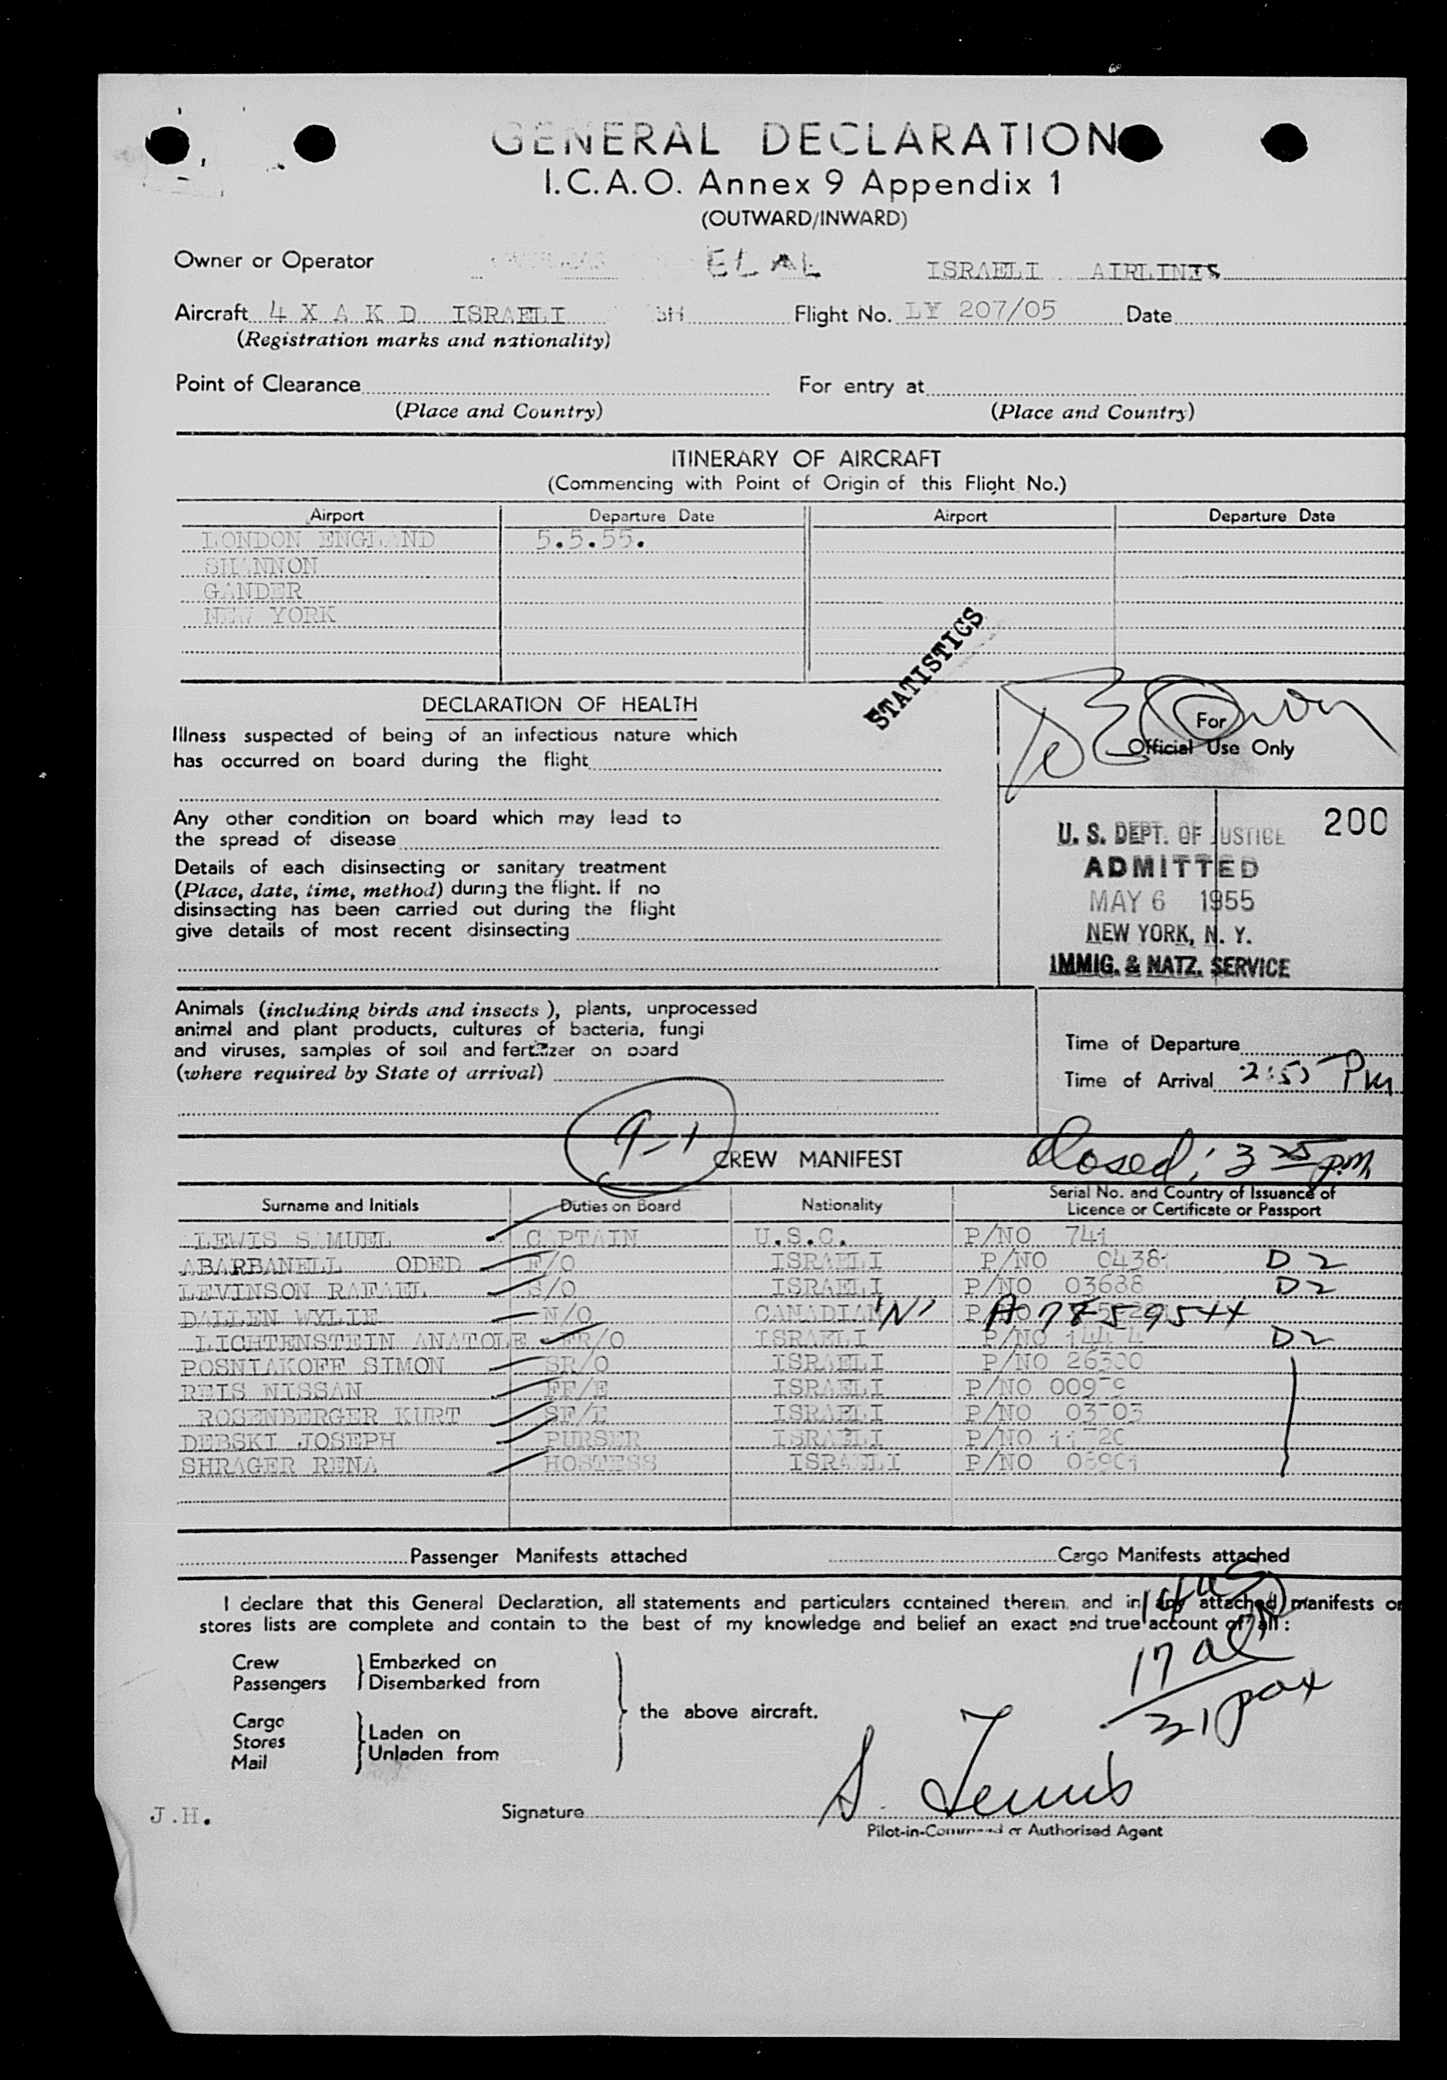 GENERAL DECLARATION
I.C.A.O. Annex 9 Appendix 1
(OUTWARD/INWARD)
Owner or Operator EL AL ISRAELI AIRLINES
Aircraft 4 X A K D ISRAELI Flight No. LY 207/05 Date
(Registration marks and nationality)
Point of Clearance For entry at
(Place and Country) (Place and Country)
ITINERARY OF AIRCRAFT
(Commencing with Point of Origin of this Flight No.)
Airport Departure Date Airport Departure Date
LONDON ENGLAND 5.5.55.
SHANNON
GANDER
NEW YORK
STATISTICS
DECLARATION OF HEALTH
Illness suspected of being of an infectious nature which
has occurred on board during the flight
For
Official Use Only
Any other condition on board which may lead to
the spread of disease
Details of each disinsecting or sanitary treatment
(Place, date, time, method) during the flight. If no
disinsecting has been carried out during the flight
give details of most recent disinsecting
200
U. S. DEPT. OF JUSTICE
ADMITTED
MAY 6 1955
NEW YORK, N. Y.
IMMIG. & NATZ. SERVICE
Animals (including birds and insects ), plants, unprocessed
animal and plant products, cultures of bacteria, fungi
and viruses, samples of soil and fertilizer on board
(where required by State of arrival)
Time of Departure
Time of Arrival 2:55 PM
9-1
CREW MANIFEST
Closed: 3 25 p.m.
Surname and Initials Duties on Board Nationality Serial No. and Country of Issuance of
Licence or Certificate or Passport
LEWIS SAMUEL CAPTAIN U.S.C. P/NO 741
ABARBANELL ODED F/O ISRAELI P/NO 04381 D2
LEVINSON RAFAEL S/O ISRAELI P/NO 03688 D2
DALLEN WYLIE N/O CANADIAN "N" P/NO A7859544
LICHTENSTEIN ANATOLE FR/O ISRAELI P/NO D2
POSNIAKOFF SIMON SR/O ISRAELI P/NO 26300
REIS NISSAN FF/E ISRAELI P/NO
ROSENBERGER KURT SF/E ISRAELI P/NO
DEBSKI JOSEPH PURSER ISRAELI P/NO 11720
SHRAGER RENA HOSTESS ISRAELI P/NO 08901
Passenger Manifests attached Cargo Manifests attached
I declare that this General Declaration, all statements and particulars contained therein and in any attached manifests or
stores lists are complete and contain to the best of my knowledge and belief an exact and true account of all :
Crew
Passengers
Embarked on
Disembarked from
Cargo
Stores
Mail
Laden on
Unladen from
the above aircraft.
14 US
17 al
31 pax
J.H.
Signature S. Lewis
Pilot-in-Command or Authorised Agent